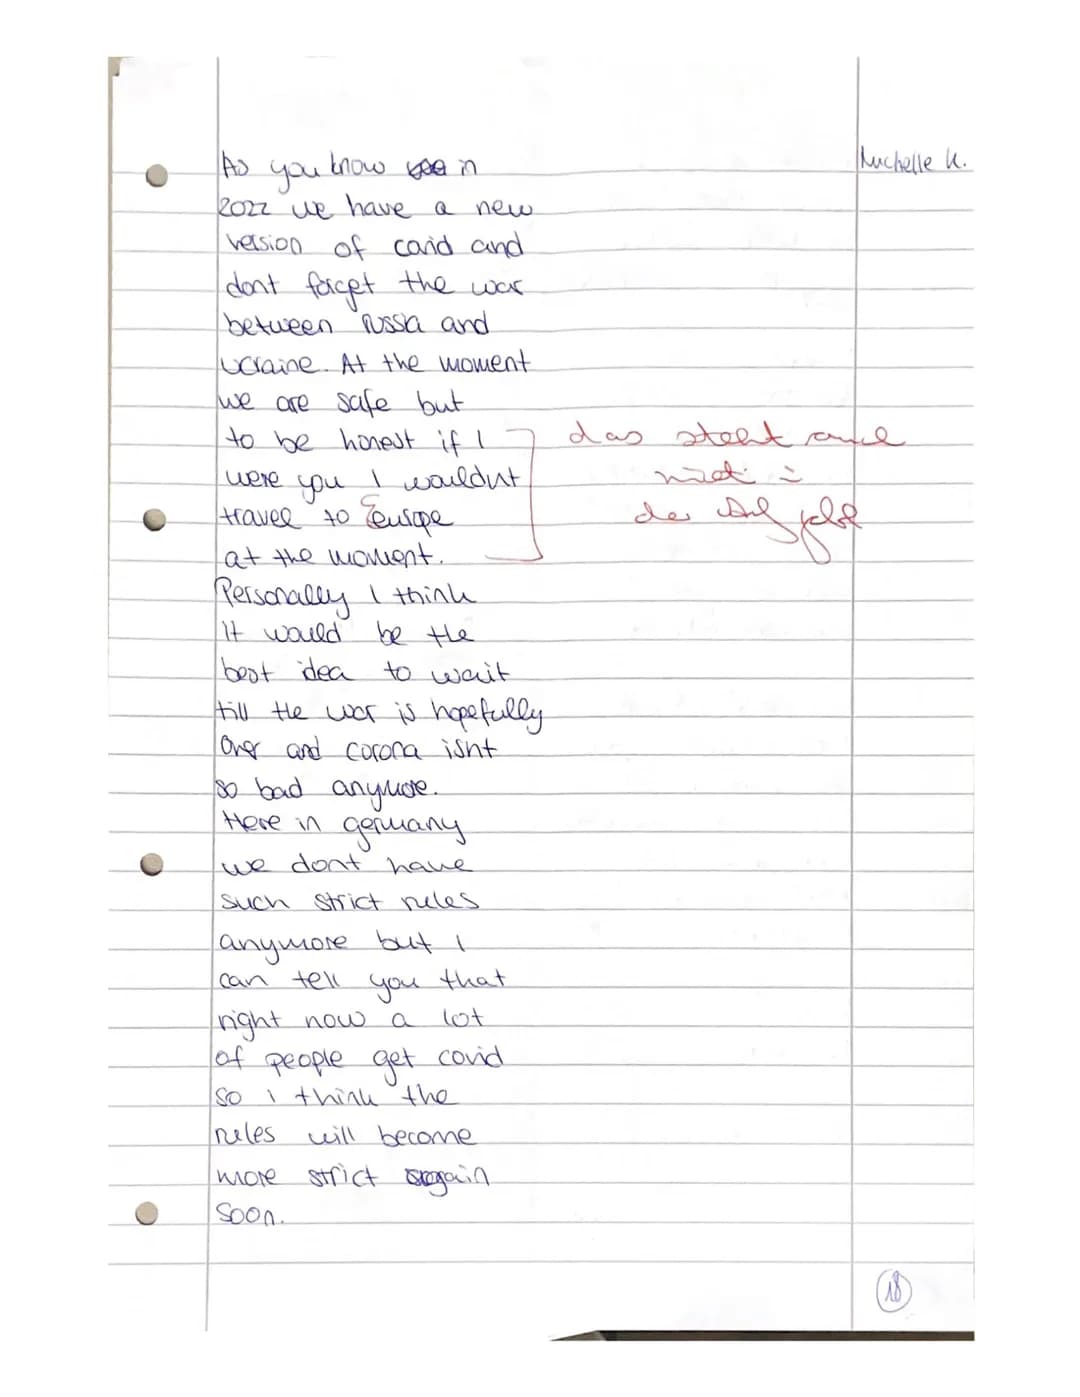 Michelle K.
As you know in
2022 we have a new
version of covid and
dont forget the war
between russa and
ucraine. At the moment
we are safe but
to be honest if I
were you I wouldnt
travel to Europe
at the moment.
das steht auch
nicht in
der Aufgabe
Personally I think
it would be the
best idea to wait
till the war is hopefully
over and corona isnt
so bad anymore.
Here in germany
we dont have
such strict rules
anymore but I
can tell you that
right now a lot
of people get covid
so i think the
rules will become
more strict again
soon.
18